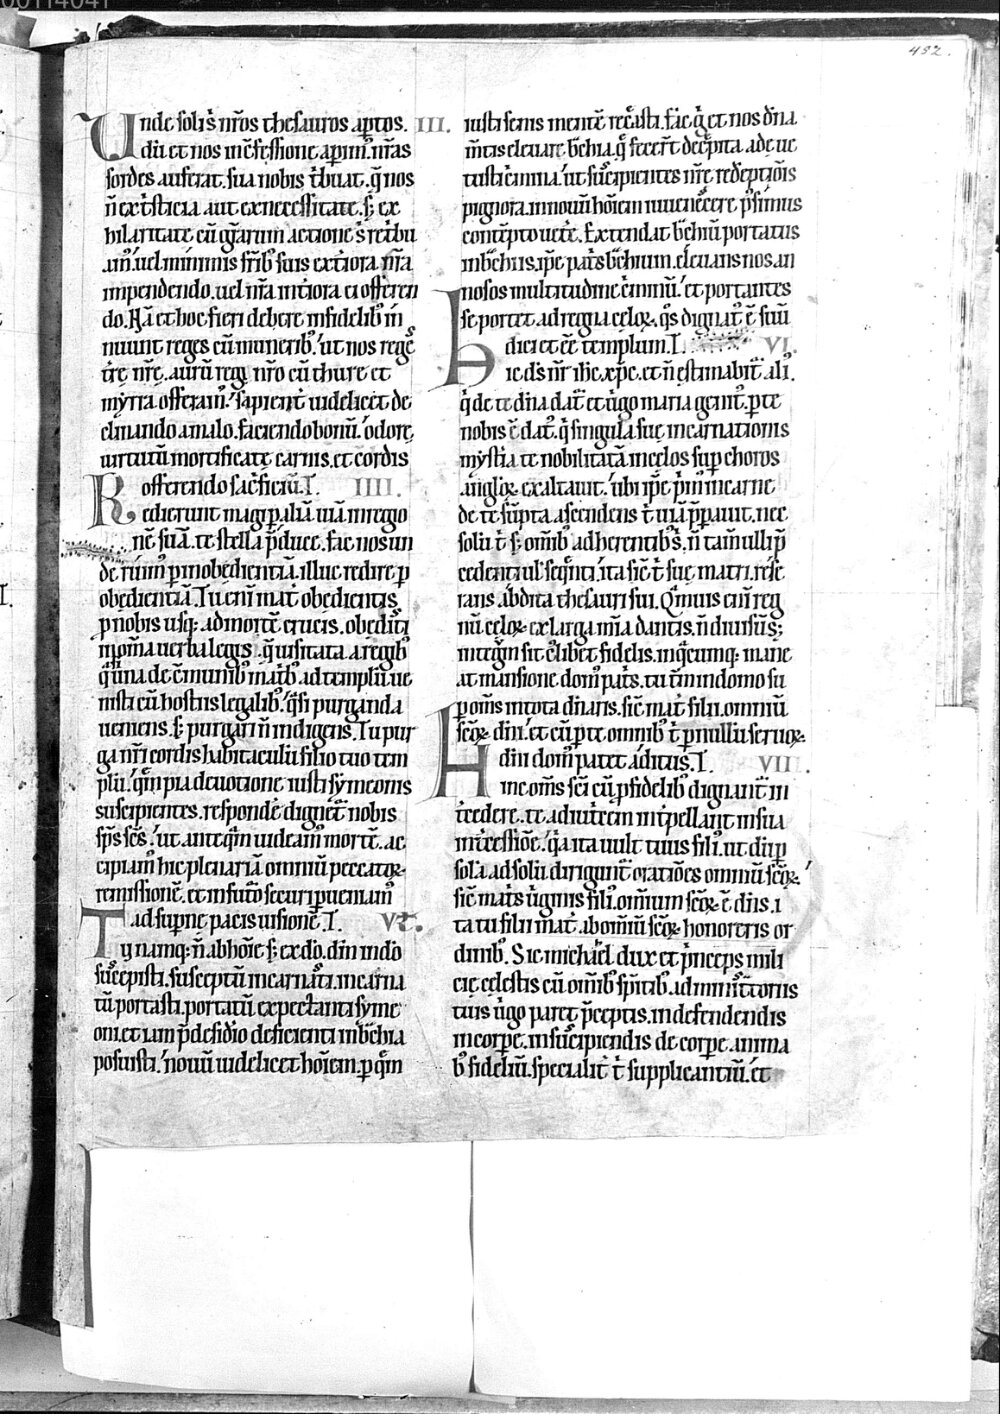 482.
Unde solis nr̄os thesauros aptos. III.
dū et nos in c̄fessione aꝑim. nr̄as
sordes auferat. sua nobis t̄buat. q̄ nos
n̄ ex t̄sticia aut ex necessitate. s; ex
hilaritate cū gr̄arum actione
uel minimis fr̄ib; suis exteriora nr̄a
impendendo. uel nr̄a int̄iora ei offeren
do. Hā et hoc fieri debere in fidelib; in
nuunt reges cū munerib;. ut nos rege
t̄re nr̄e. aurū regi nr̄o cū thure et
myrra offeram;. sapient̄ uidelicet de
clinando a malo. faciendo bonū. odore
uirtutū mortificatę carnis. et cordis
offerendo sac̄ficiū. I. IIII.
Redierunt magi ꝑ aliā uiā in regio
nē suā. te stella p̄duce. fac nos un
de ruim; ꝑ inobedientiā. illuc redire ꝑ
obedientiā. Tu eni mat̄ obedientis
ꝓ nobis usq; ad mortē crucis. obediſti
in om̄ia uerba legis. q̄ uisitata a regib;
q̄si una de c̄munib; matrib; ad templū ue
nisti cū hostiis legalib;. q̄si purganda
ueniens. s; purgari n̄ indigens. Tu pur
ga nr̄i cordis habitaculū filio tuo tem
plū. q̄m pia deuotione iusti symeonis
suscipientes. respondē dignet̄ nobis
sp̄s sc̄s. ut anteq̄m uideam; mortē. ac
cipiam; hic plenariā omniū peccatoꝝ
remissionē. et in futuro securi ꝑueniam;
ad sup̄nę pacis uisionē. I. V.
Tu namq; n̄ ab hoīe s; ex dō. dīn in dō
suscepisti. susceptū incarnasti. incarna
tū portasti. portatū expectanti syme
oni. et iam p̄ desidio deficienti in b̄chia
posuisti. nouū uidelicet hoīem. ꝑ q̄m
iusti senis mentē recr̄asti. Fac q̄ et nos dn̄a
m̄tis eleuare b̄chia. q̄ fecer̄t decr̄pita. ad e ue
tusti c̄nnia. ut suscipientes nr̄ę redēptiōis
pignora. in nouū hōīem iuuenescere p̄simus
contēpto uetere. Extendat b̄chiū portatus
in b̄chiis. ip̄e pat̄s b̄chium. eleuans nos. an
nosos multitudine c̄minū. et portantes
se portet. ad regna celoꝝ. q̄s dignat; ē suū
dici et ēē templum. I. VI.
Hic ds̄ nr̄ ih̄c xp̄c. et n̄ estimabit̄ ali;.
q̄ de te dn̄a dat; et uirgo maria genit;. ꝑ te
nobis ē dat;. q̄ singula suę incarnationis
mystia te nobilitatā in celos sup̄ choros
angloꝝ exaltauit. ubi ip̄e p̄m; in carne
de te sūpta ascendens t̄ uiā p̄parauit. nec
soli t̄ s; omīb; adherentib; s. n̄ tam nulli p̄
cedenti ul̄ seq̄nti. ita sic t̄ suę matri. rese
rans abdita thesauri sui. Q̄muis eni reg
nū celoꝝ ex larga mīa dantis. n̄ diuisus;
inteḡm sit c̄libet fidelis. in q̄cumq; mane
at mansione dom; pat̄s. tu tm̄ in domo su
ꝑ om̄s in tota dn̄aris. sic mat̄ filii omniū
sc̄oꝝ dn̄i. et cū ꝑ te omnib; t̄ ꝑ nullū seruoꝝ
din̄ dom; patet aditus. I. VII.
Hinc om̄s sc̄i cū ꝑ fidelib; dignant̄ in
t̄cedere. te adiut̄cem int̄pellant in sua
int̄cessiōe. q̄a ita uult tuus fili;. ut dū ꝑ
sola ad solū dirigunt̄ oratiōes omniū sc̄oꝝ
sic mat̄s uirginis fili; omnium sc̄oꝝ ē dn̄s. i
ta tu filii mat̄ ab omnī sc̄oꝝ honoreris or
dinib;. Sic michael dux et p̄nceps mili
cię celestis cū omīb; sp̄itib; administ̄toriis
tuis uirgo paret p̄ceptis. in defendendis
in corꝑe. in suscipiendis de corꝑe. anima
b; fideliū. specialit̄ t̄ supplicantiū. et